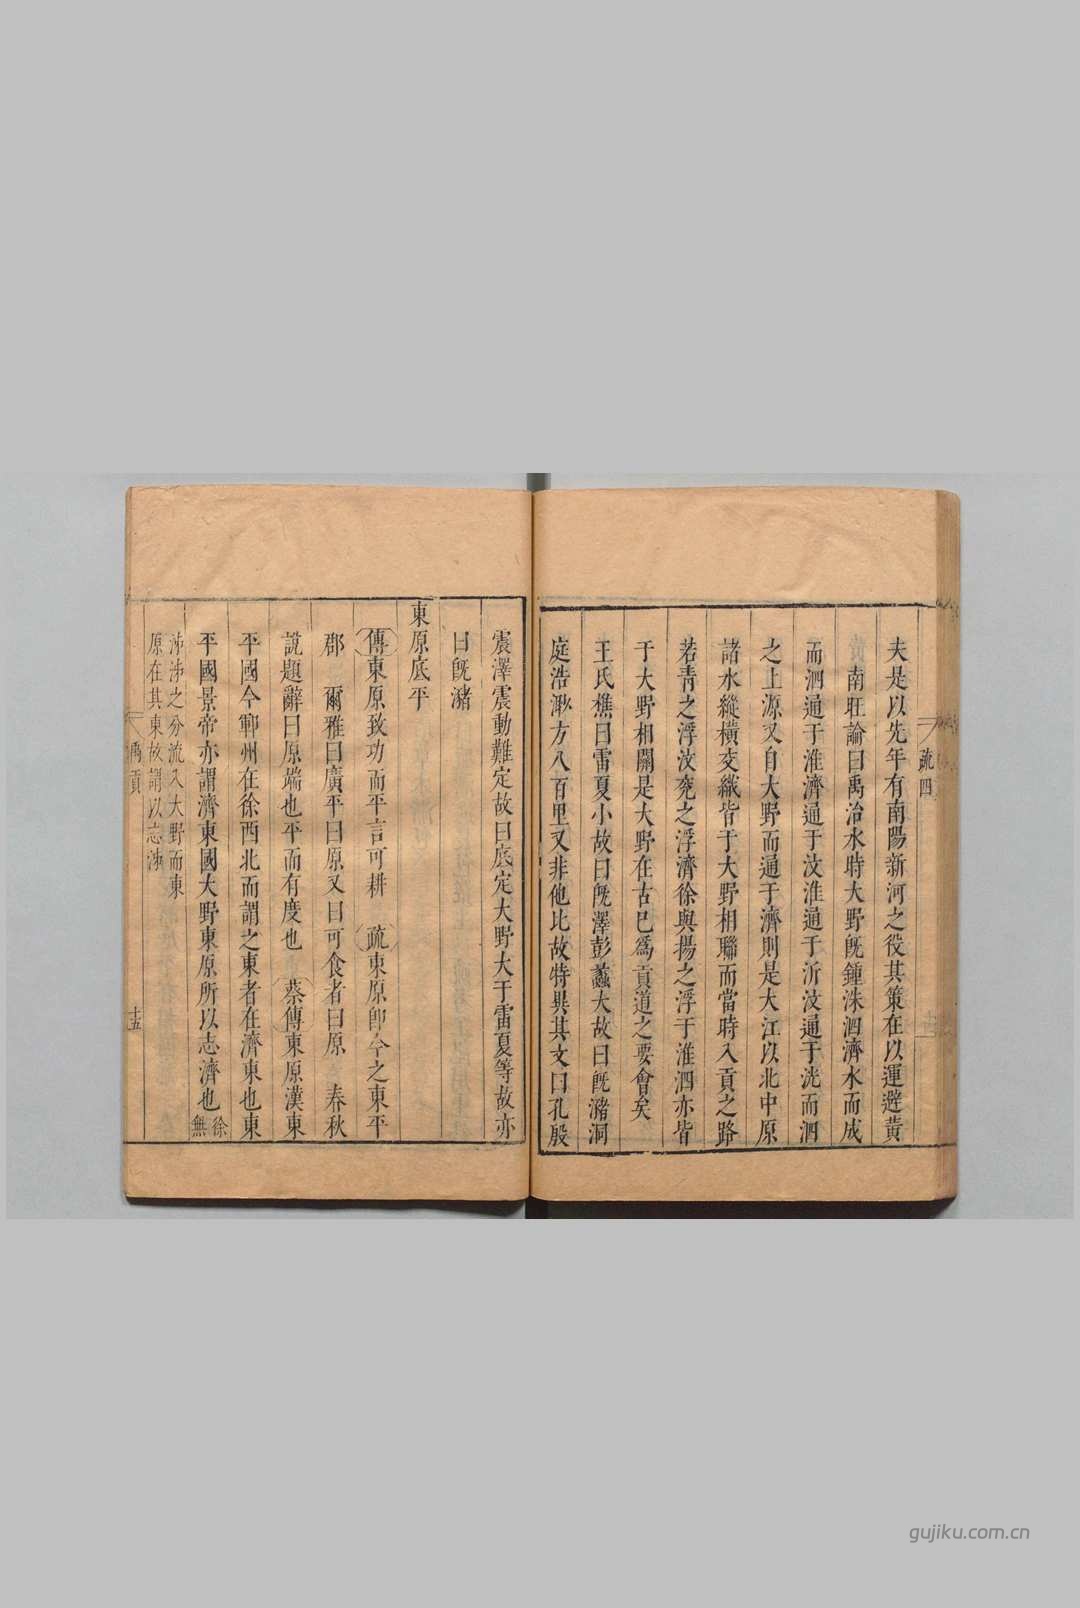 疏四
夫是以先年有南陽新河之役其策在以運避黃
南旺論曰禹治水時大野旣鍾洙泗濟水而成
而泗通于淮濟通于汶淮通于沂汶通于洸而泗
之上源又自大野而通于濟則是大江以北中原
諸水縱橫交織皆于大野相聯而當時入貢之路
若青之浮汶兖之浮濟徐與揚之浮于淮泗亦皆
于大野相關是大野在古已爲貢道之要會矣
王氏樵曰雷夏小故曰旣澤彭蠡大故曰旣瀦洞
庭浩渺方八百里又非他比故特異其文曰孔殷
震澤震動難定故曰底定大野大于雷夏等故亦
曰旣瀦
東原底平
傳東原致功而平言可耕 疏東原卽今之東平
郡 爾雅曰廣平曰原又曰可食者曰原 春秋
說題辭曰原端也平而有度也 蔡傳東原漢東
平國今鄆州在徐西北而謂之東者在濟東也東
平國景帝亦謂濟東國大野東原所以志濟也 徐無
泲泲之分流入大野而東
原在其東故謂以志泲
禹貢
十五
gujiku.com.cn